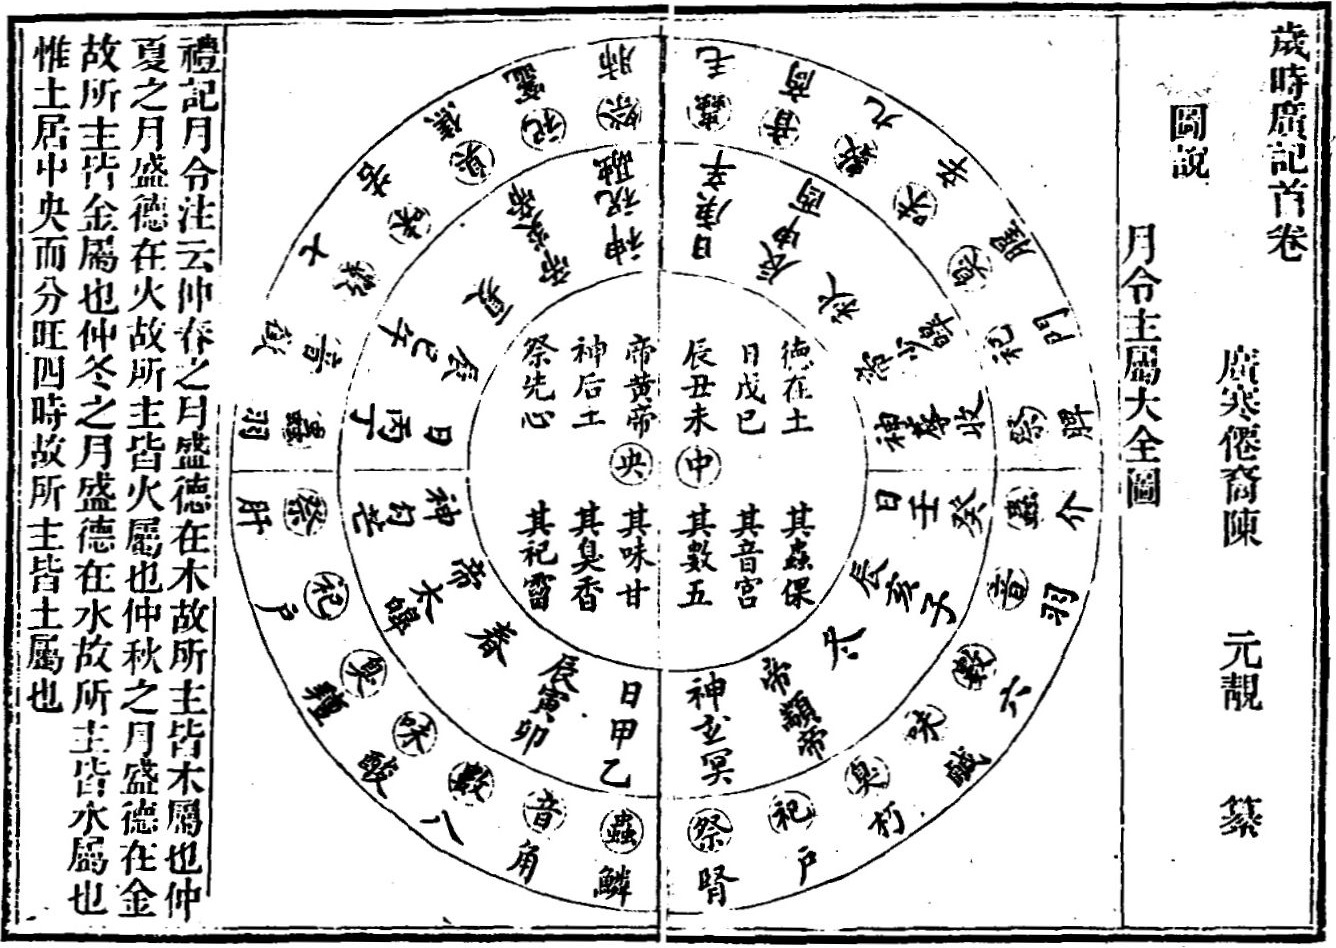 歲時廣記首卷
廣寒僊裔陳 元靚 纂
圖說
月令主屬大全圖
中央
德在土
日戊巳
辰丑未
帝黄帝
神后土
祭先心
其蟲倮
其音宮
其數五
其味甘
其臭香
其祀霤
春
日甲乙
辰寅卯
帝太皞
神勾芒
蟲鱗
音角
數八
味酸
臭羶
祀戶
祭肝
夏
日丙丁
辰巳午
帝炎帝
神祝融
蟲羽
音徵
數七
味苦
臭焦
祀竈
祭肺
秋
日庚辛
辰申酉
帝少皞
神蓐收
蟲毛
音商
數九
味辛
臭腥
祀門
祭脾
冬
日壬癸
辰亥子
帝顓帝
神玄冥
蟲介
音羽
數六
味鹹
臭朽
祀戶
祭腎
禮記月令注云仲春之月盛德在木故所主皆木屬也仲
夏之月盛德在火故所主皆火屬也仲秋之月盛德在金
故所主皆金屬也仲冬之月盛德在水故所主皆水屬也
惟土居中央而分旺四時故所主皆土屬也